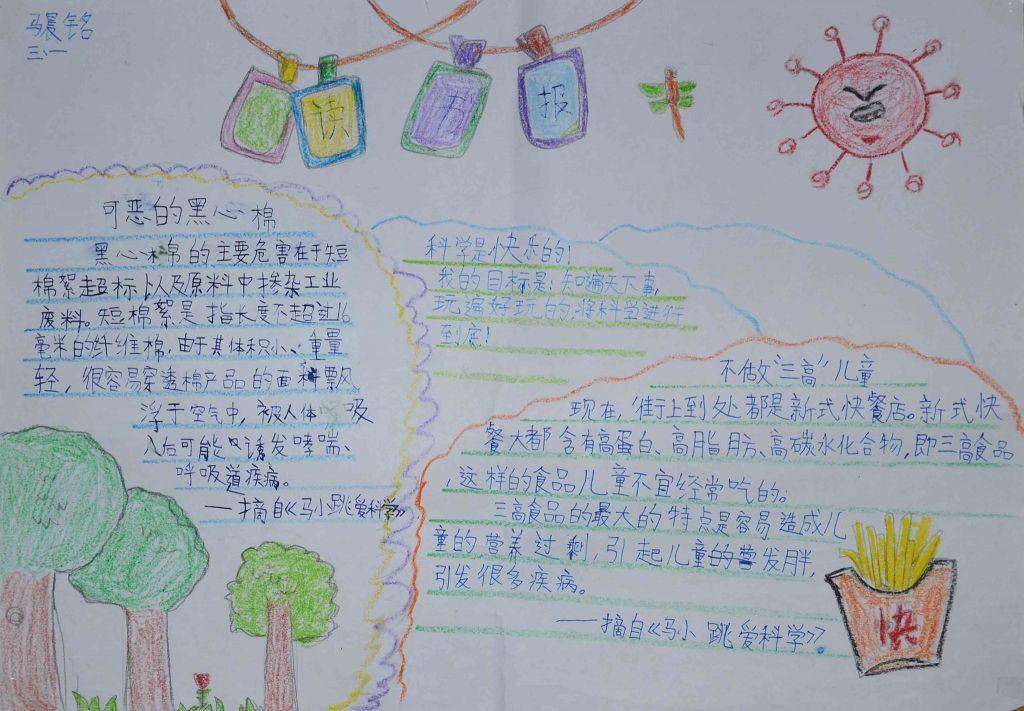 马晨铭
三、一
读 书 报
可恶的黑心棉
黑心棉的主要危害在于短
棉絮超标以及原料中掺杂工业
废料。短棉絮是指长度不超过16
毫米的纤维棉，由于其体积小、重量
轻，很容易穿透棉产品的面料飘
浮于空气中，被人体吸
入后可能诱发哮喘、
呼吸道疾病。
——摘自《马小跳爱科学》
科学是快乐的！
我的目标是：知遍天下事，
玩遍好玩的，将科学进行
到底！
不做“三高”儿童
现在，街上到处都是新式快餐店。新式快
餐大都含有高蛋白、高脂肪、高碳水化合物，即三高食品
，这样的食品儿童不宜经常吃的。
三高食品的最大的特点是容易造成儿
童的营养过剩，引起儿童的营发胖，
引发很多疾病。
——摘自《马小跳爱科学》。
快